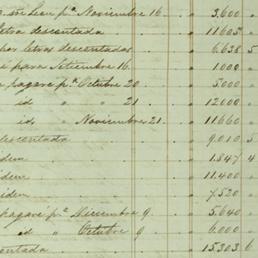 Noviembre 16 " 3.600 "
letra descontada " 11605 "
por letras descontadas " 6.638 5
para Setiembre 16 " 1000 "
pagaré pª Octubre 20 " 5000 "
id " " 21 " 12100 "
id " Noviembre 21 " 11.660 "
descontada " 9.010 5
idem " 1.847 4
idem " 11.400 "
idem " 7.520 "
pagaré pª Diciembre 9 " 5.640 "
id " Octubre 9 " 6.000 "
contada " 15303 6